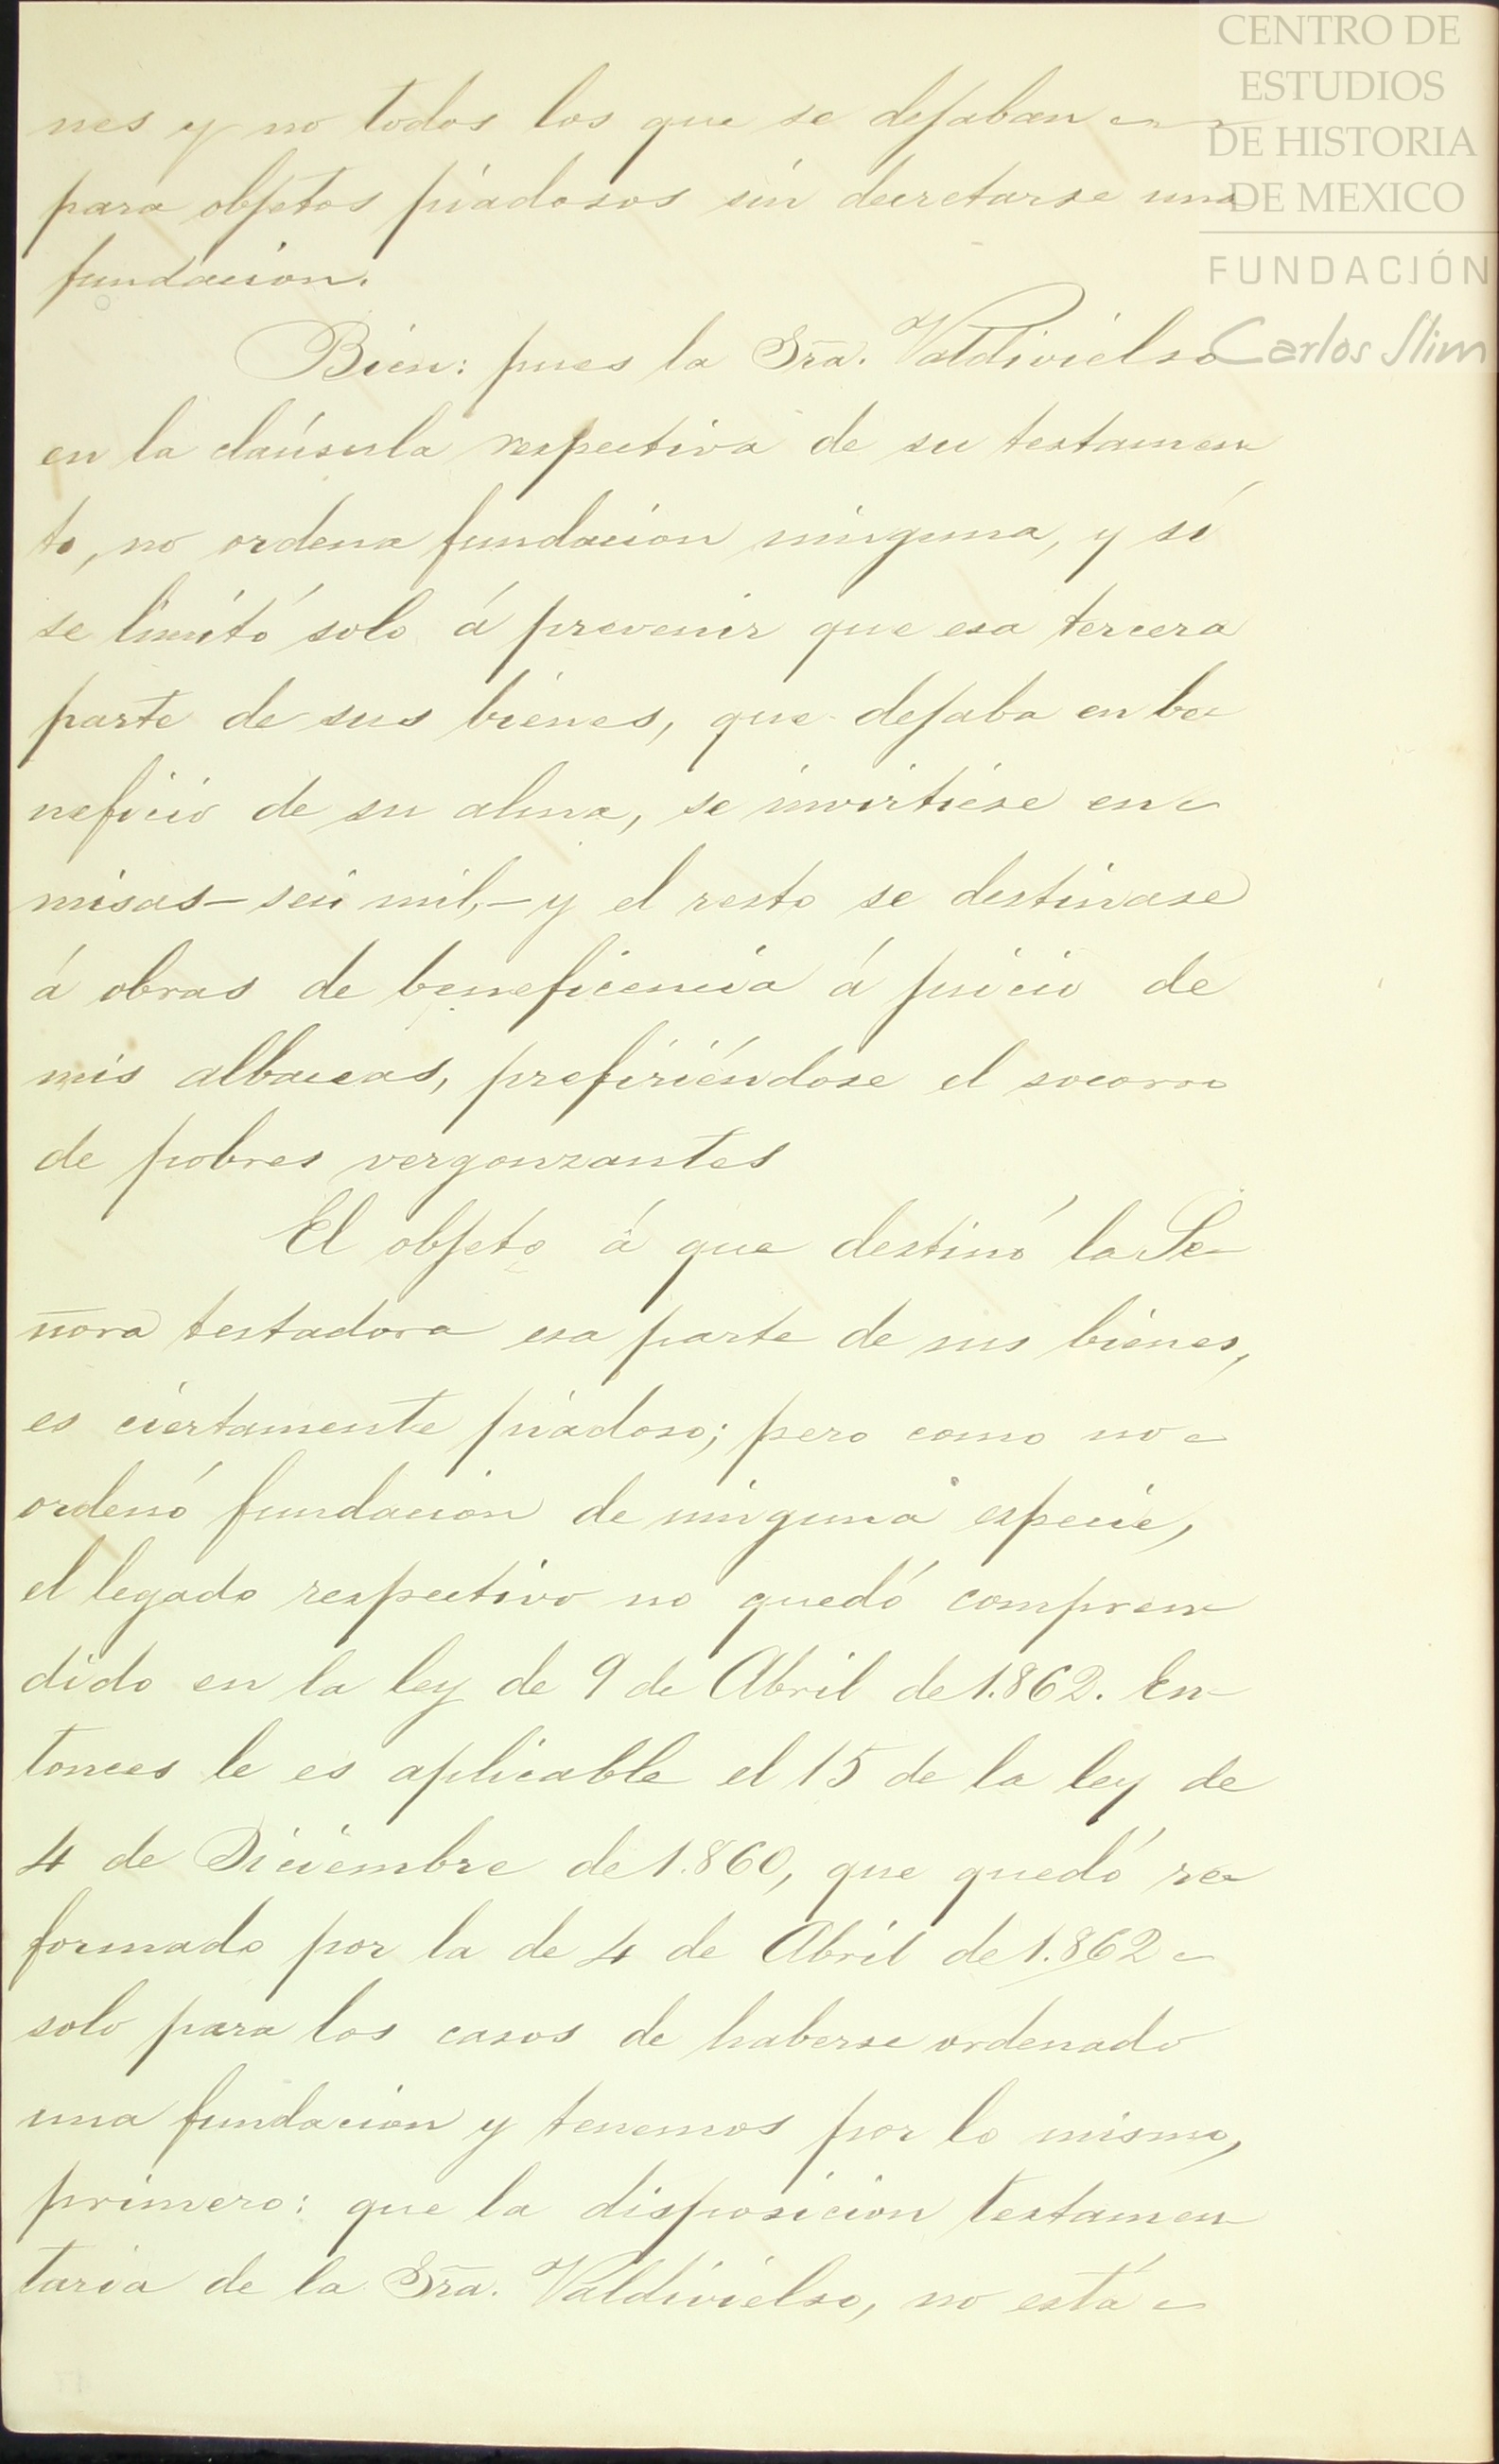 CENTRO DE
ESTUDIOS
DE HISTORIA
DE MEXICO
FUNDACIÓN
Carlos Slim
nes y no todos los que se dejaban
para objetos piadosos sin decretarse una
fundacion.
Bien: pues la Sra. Valdivielso
en la claúsula respectiva de su testamen
to, no ordena fundacion ninguna, y sí
se limitó solo á prevenir que esa tercera
parte de sus bienes, que dejaba en be-
neficio de su alma, se invirtiese en
misas—seis mil,—y el resto se destinase
á obras de beneficencia á juicio de
mis albaceas, prefiriéndose el socorro
de pobres vergonzantes
El objeto á que destinó la Se-
ñora testadora esa parte de sus bienes,
es ciertamente piadoso; pero como no
ordenó fundacion de ninguna especie,
el legado respectivo no quedó compren
dido en la ley de 9 de Abril de 1.862. En-
tonces le es aplicable el 15 de la ley de
4 de Diciembre de 1.860, que quedó re-
formado por la de 4 de Abril de 1.862
solo para los casos de haberse ordenado
una fundacion y tenemos por lo mismo,
primero: que la disposicion testamen
taria de la Sra. Valdivielso, no está